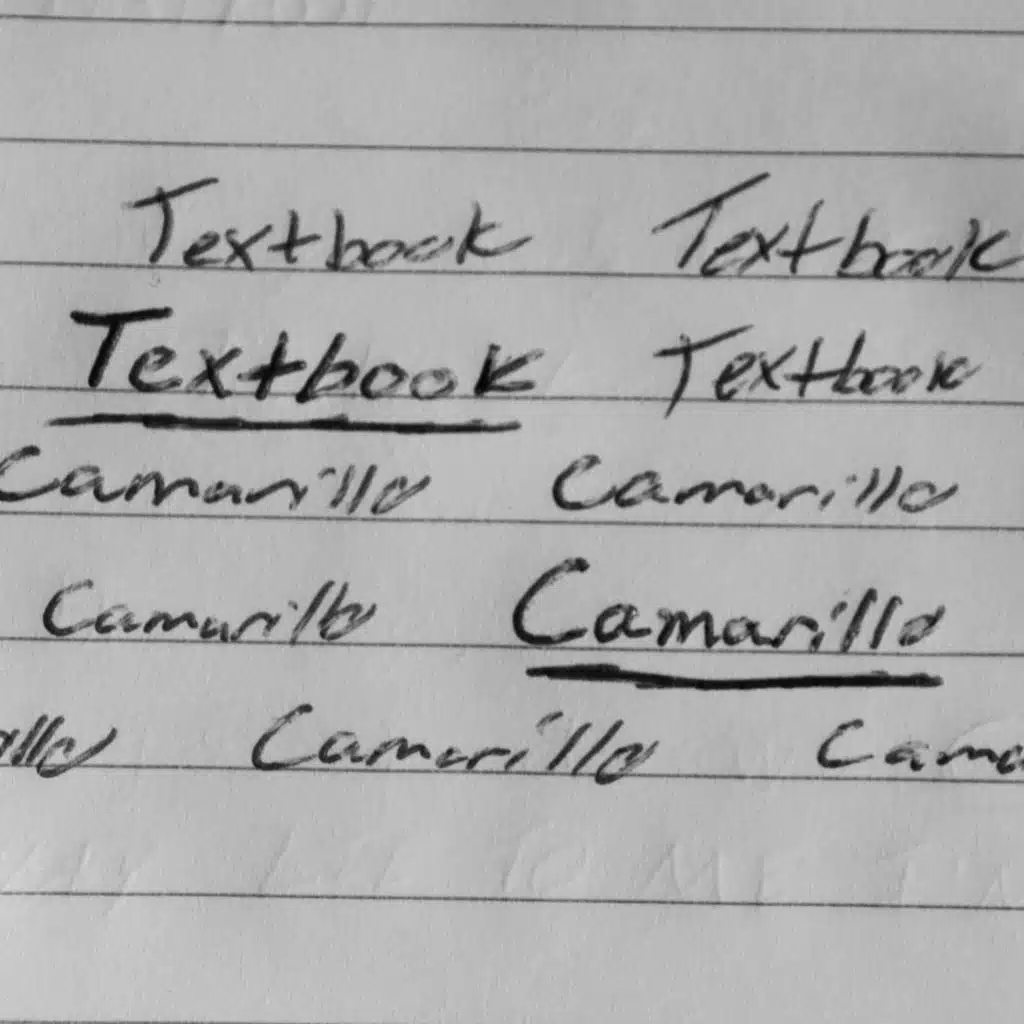 Textbook Textbook
Textbook Textbook
Camarillo Camarillo
Camarillo Camarillo
illo Camarillo Cama